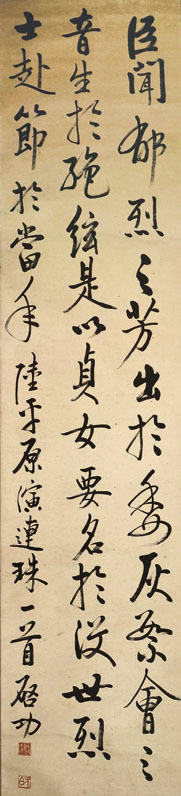 臣聞郁烈之芳出於委灰繁會之
音生於絕絃是以貞女要名於没世烈
士赴節於當年 陸平原演連珠一首 啓功